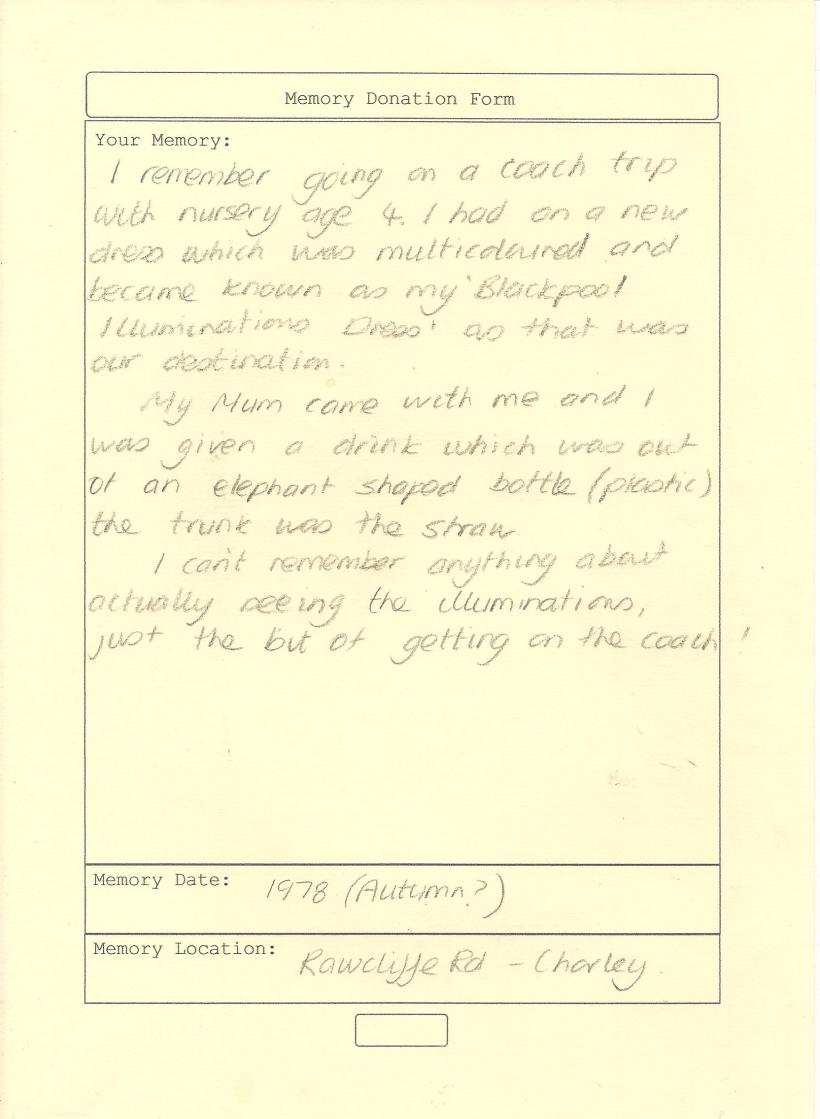 Memory Donation Form
Your Memory:
I remember going on a coach trip
with nursery age 4. I had on a new
dress which was multicoloured and
became known as my 'Blackpool
Illuminations Dress' as that was
our destination.
My Mum came with me and I
was given a drink which was out
of an elephant shaped bottle (plastic)
the trunk was the straw
I can't remember anything about
actually seeing the illuminations,
just the bit of getting on the coach!
Memory Date: 1978 (Autumn?)
Memory Location: Rawcliffe Rd - Chorley.